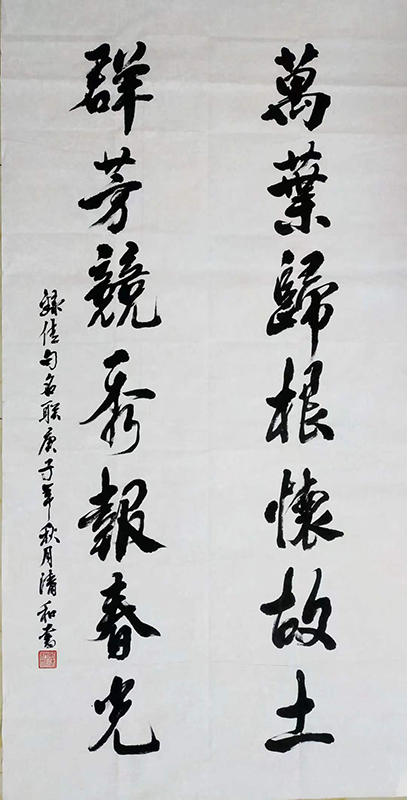 萬葉歸根懷故土
群芳競秀報春光
錄佳句名联庚子年秋月清和書